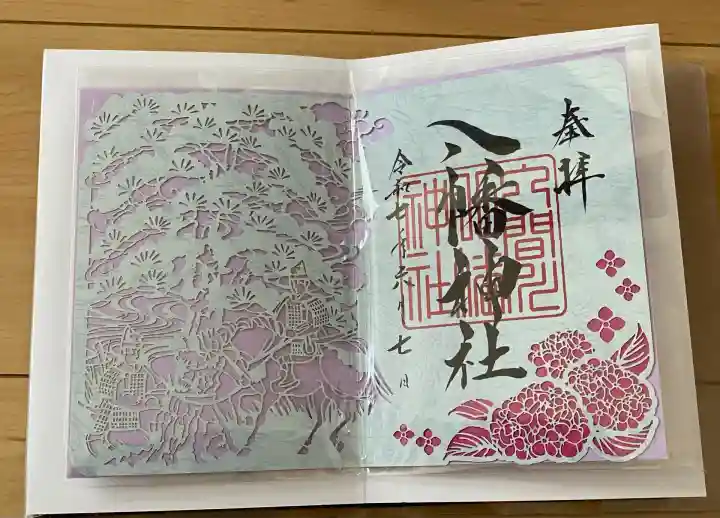 奉拝
八幡神社
令和七年六月七日
神社